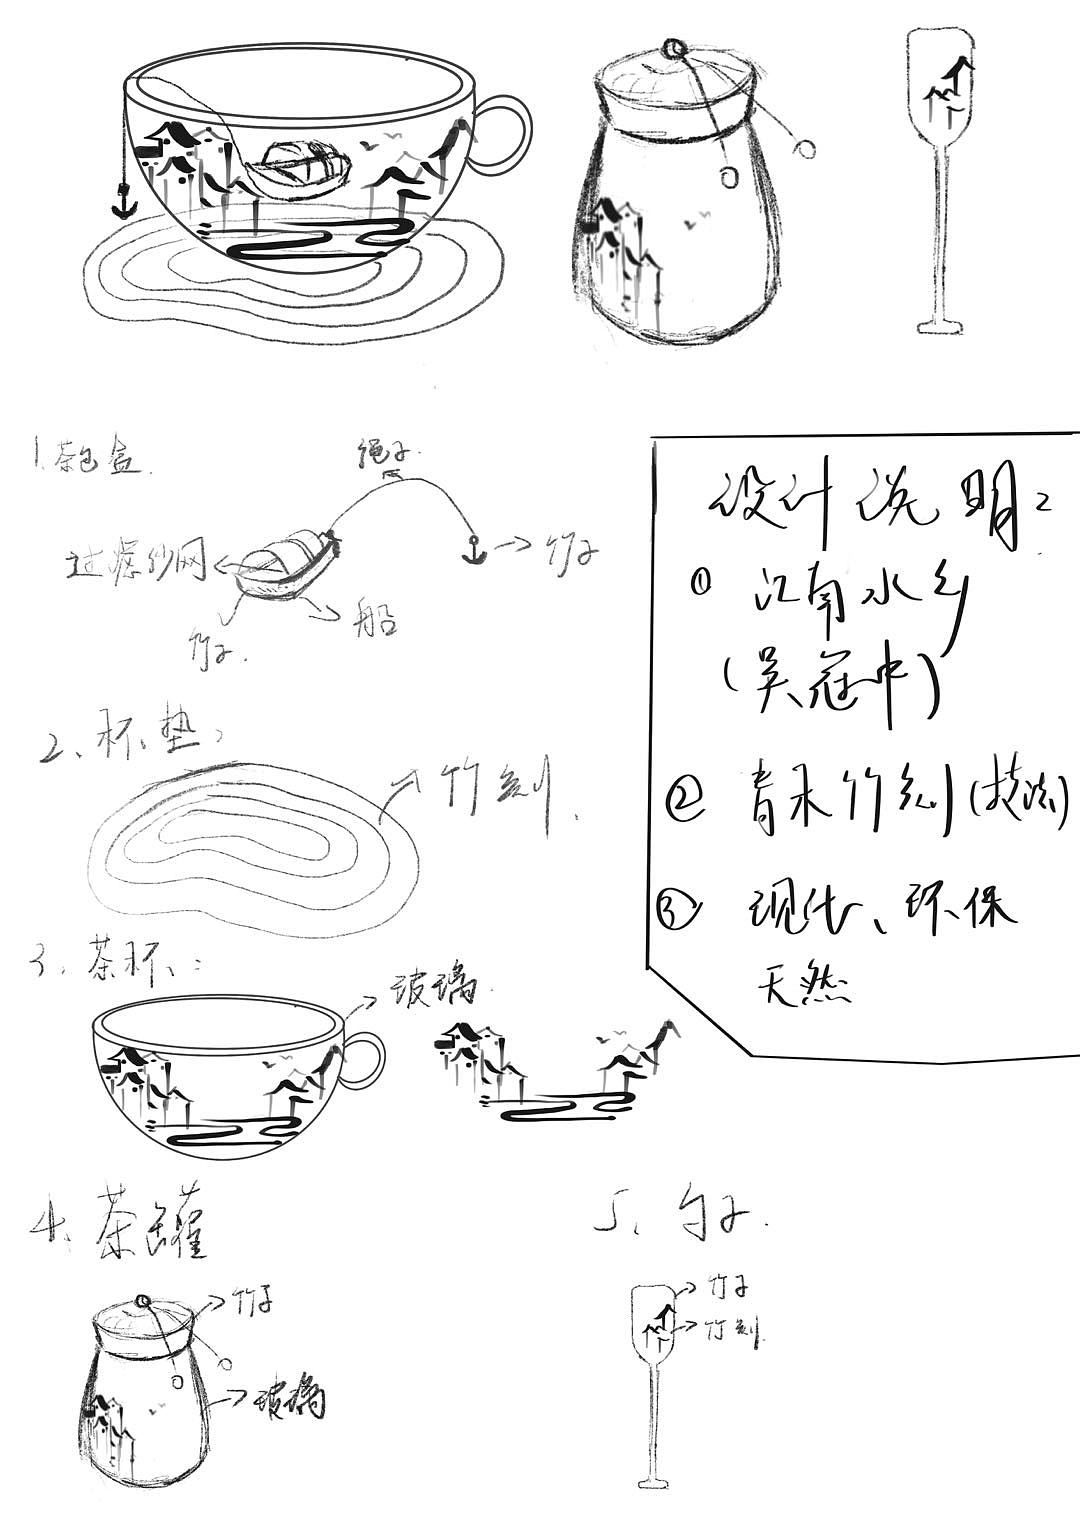 1.茶包盒.
绳子.
过滤纱网
竹子
船
竹子.
2、杯垫:
竹刻.
3.茶杯:
玻璃.
4、茶罐
竹子
玻璃
5、勺子.
竹子
竹刻
设计说明:
① 江南水乡
(吴冠中)
② 青禾竹刻(技法)
③ 现代、环保
天然